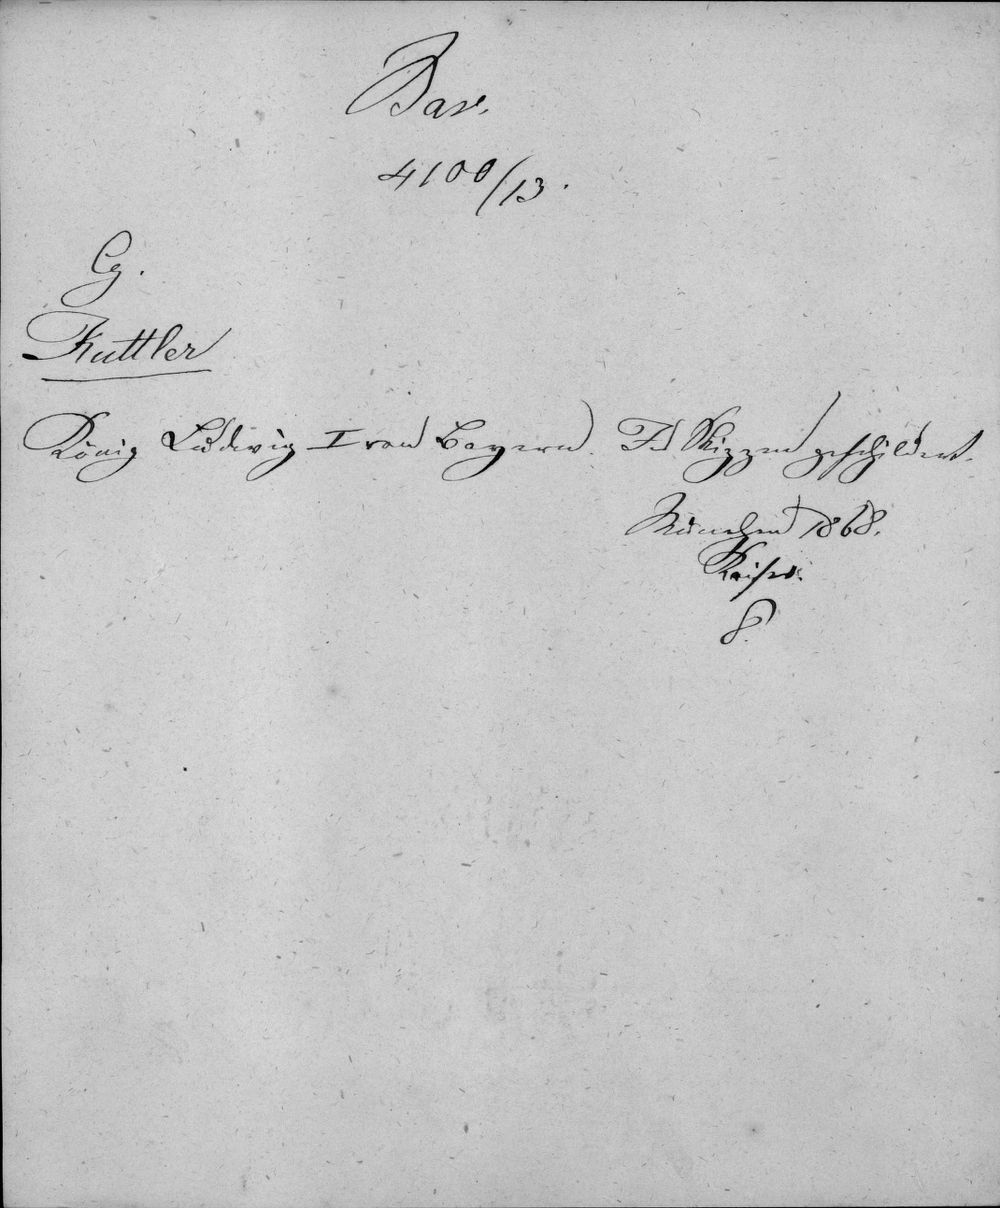 Bav.
4100/13.
G.
Kuttler
König Ludwig I von Bayern. In Skizzen geschildert.
München 1868.
Kaiser.
8.